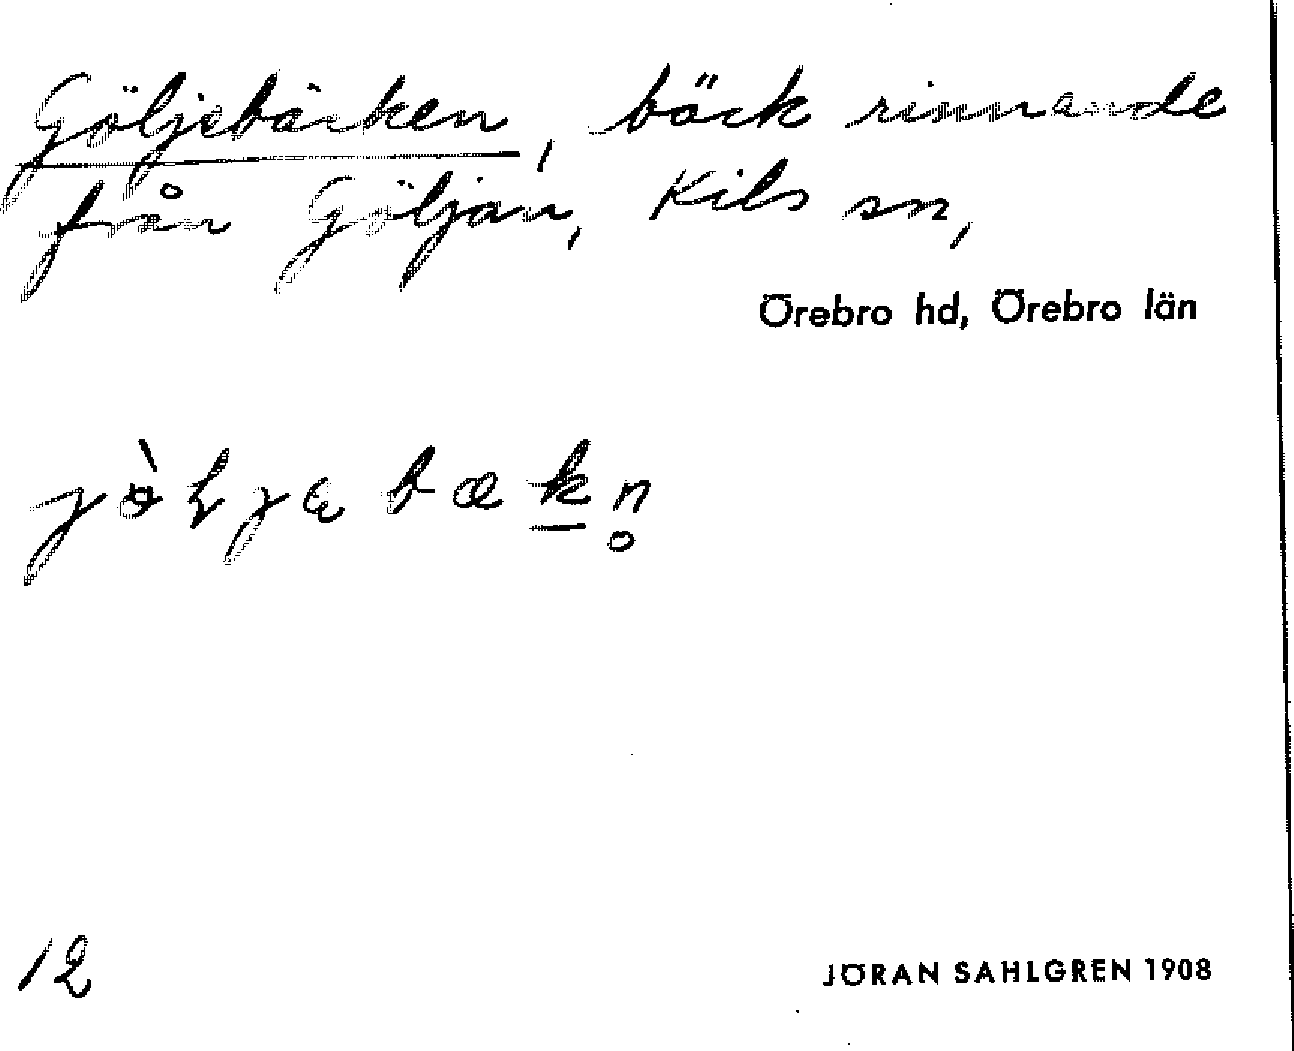 Göljebäcken, bäck rinnande
från Göljan, Kils sn,
Örebro hd, Örebro län
12
JÖRAN SAHLGREN 1908